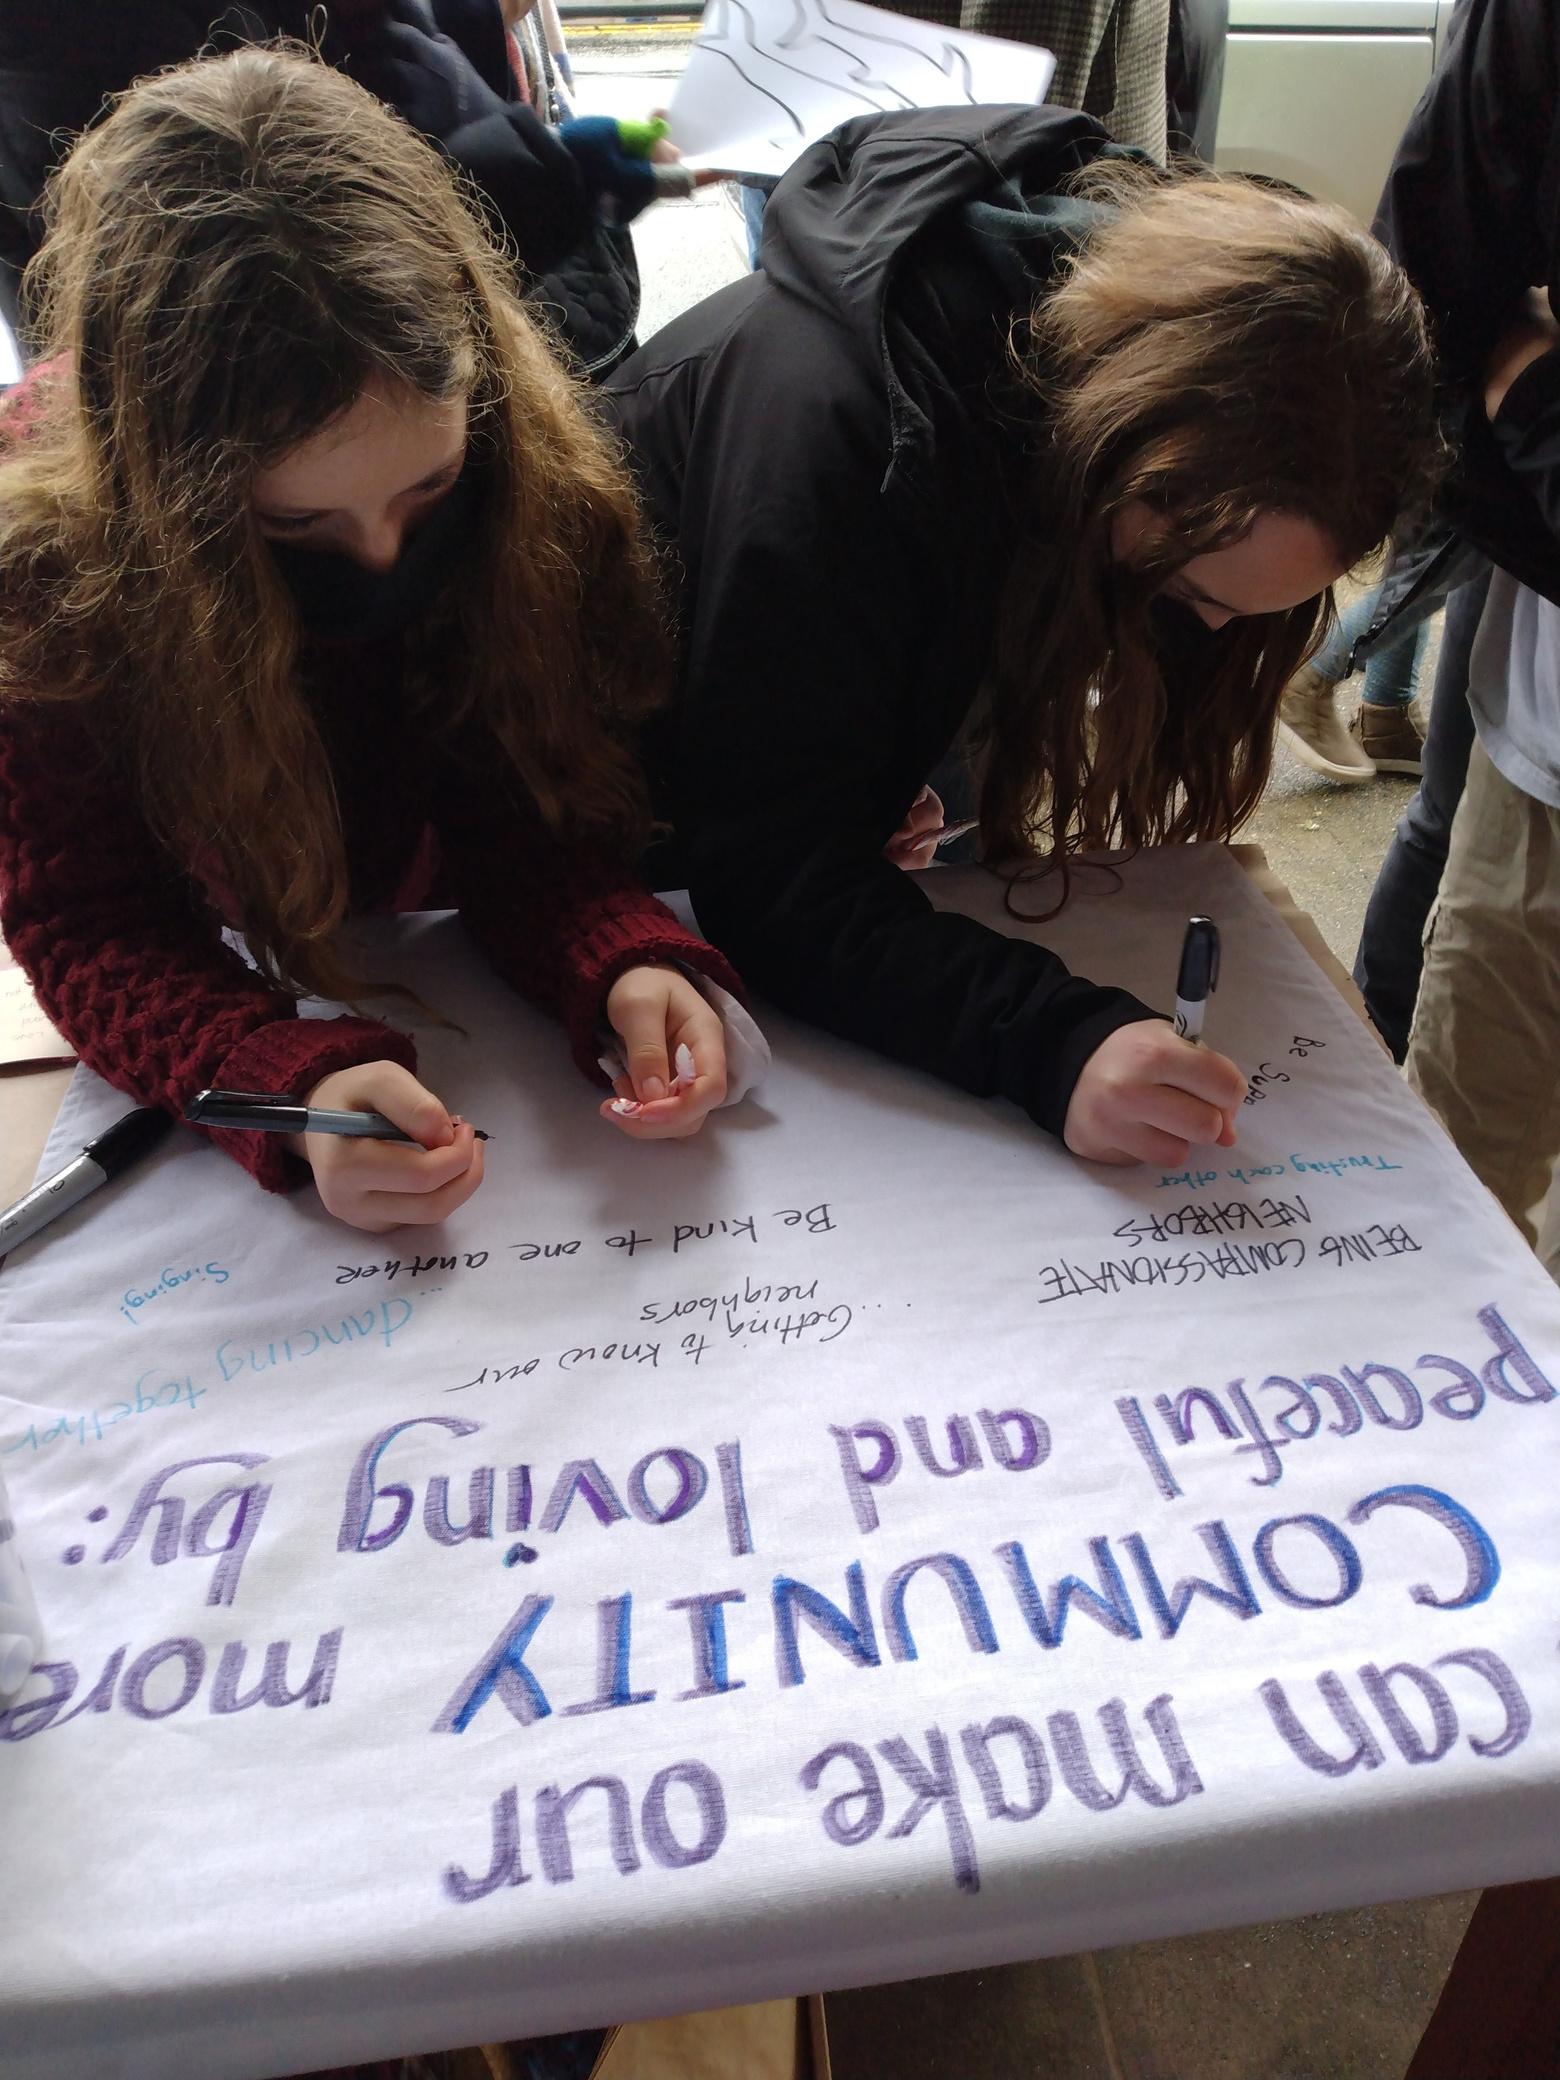 can make our
COMMUNITY more
peaceful and loving by:
BEING COMPASSIONATE
NEIGHBORS
Trusting each other
Be Supp
...Getting to know our
neighbors
Be kind to one another
...dancing together
Singing!